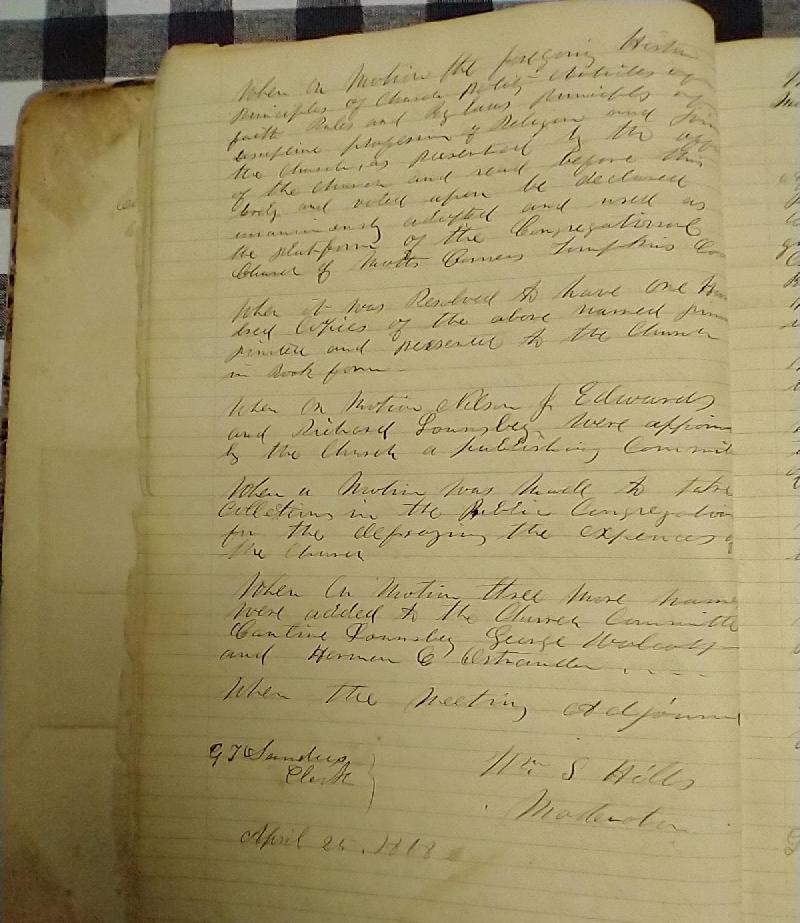 When On Motion the foregoing Histor
principles of Church Polity Articles of
faith Rules and By laws principles of
discipline profession of Religion and
the Church, as presented by the
of the Church and read before this
body and voted upon be declared
unanimously adopted and used as
the platform of the Congregational
Church of Motts Corners Tompkins Co
When it was Resolved to have one Hun
dred Copies of the above named prin
printed and presented to the Church
in Book form
When On Motion Nelson J. Edwards
and Richard Lounsbey were appoin
by the Church a publishing Committ
When a Motion was Made to take
Collections in the Public Congregation
for the defraying the expences o
the Church
When On Motion three more name
were added to the Church Committe
Cantine Lounsbey George Wolcott
and Herman C Ostrander
When the Meeting Adjourn
G T Sanders
Clerk
Wm S Hills
Moderator
April 25, 1868